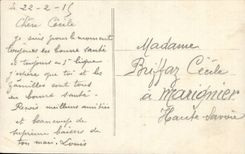 Le 22-2-15
Chère Cécile
je suis pour le moment
toujours en bonne santé
toujours en 1e ligne
j'espère que toi et les
familles sont tous en
bonne santé
Reçois meilleurs amitiés
et beaucoup de
suprême baisers de
ton mari. Louis
Madame
Briffaz Cécile
à Marignier
Haute-Savoie